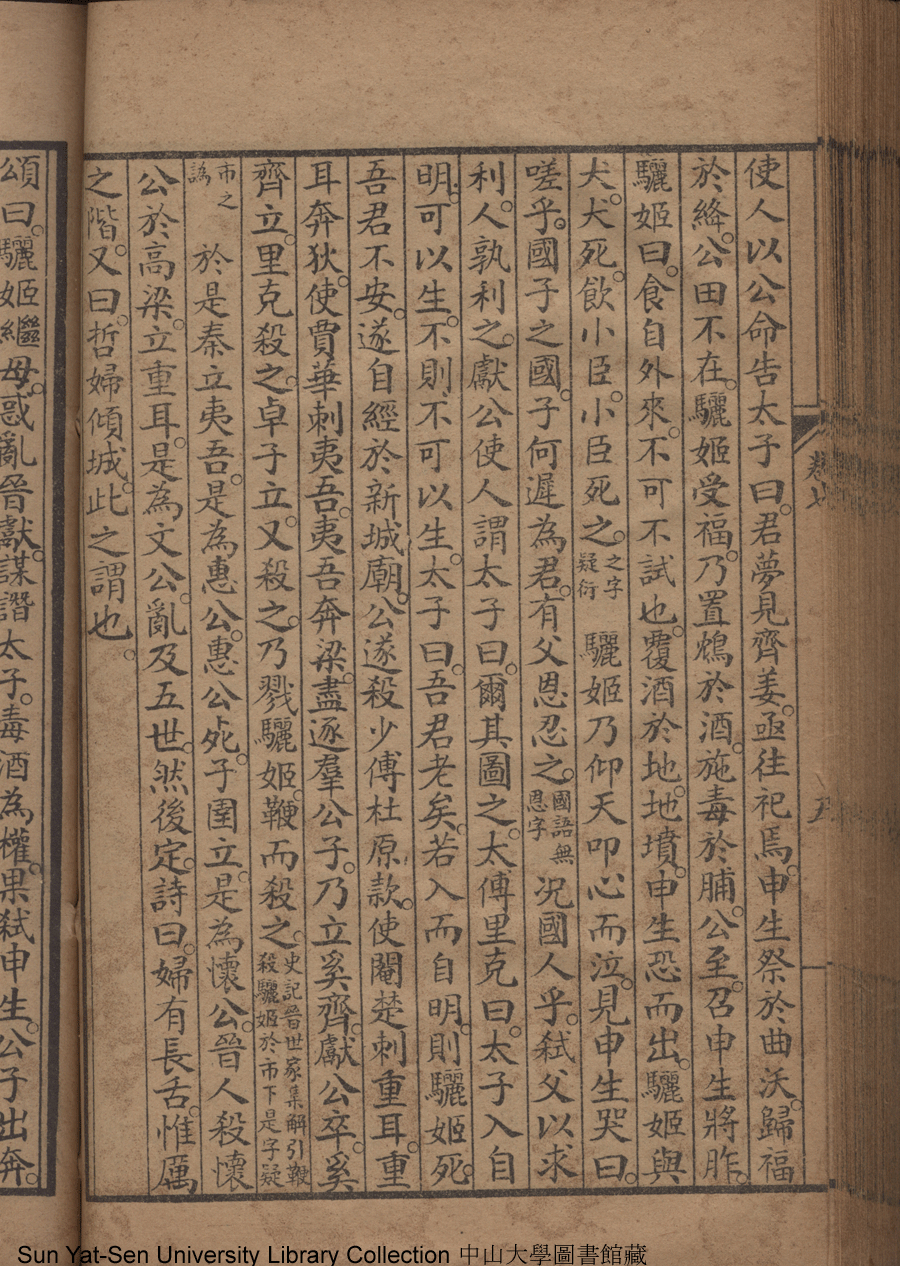 使人以公命告太子曰。君夢見齊姜。亟往祀焉。申生祭於曲沃。歸福
於絳。公田不在。驪姬受福。乃置鴆於酒。施毒於脯。公至。召申生將胙。
驪姬曰。食自外來。不可不試也。覆酒於地。地墳。申生恐而出。驪姬與
犬。犬死。飲小臣。小臣死之。之字疑衍 驪姬乃仰天叩心而泣。見申生哭曰。
嗟乎。國子之國。子何遲為君。有父恩忍之。國語無恩字 況國人乎。弒父以求
利。人孰利之。獻公使人謂太子曰。爾其圖之。太傅里克曰。太子入自
明。可以生。不則不可以生。太子曰。吾君老矣。若入而自明。則驪姬死。
吾君不安。遂自經於新城廟。公遂殺少傅杜原款。使閹楚刺重耳。重
耳奔狄。使賈華刺夷吾。夷吾奔梁。盡逐羣公子。乃立奚齊。獻公卒。奚
齊立。里克殺之。卓子立。又殺之。乃戮驪姬。鞭而殺之。史記晉世家集解引鞭殺驪姬於市下是字疑
市之譌 於是秦立夷吾。是為惠公。惠公死。子圉立。是為懷公。晉人殺懷
公於高梁。立重耳。是為文公。亂及五世。然後定。詩曰。婦有長舌。惟厲
之階。又曰。哲婦傾城。此之謂也。
頌曰。驪姬繼母。惑亂晉獻。謀譖太子。毒酒為權。果弒申生。公子出奔。
卷七
五
Sun Yat-Sen University Library Collection 中山大學圖書館藏